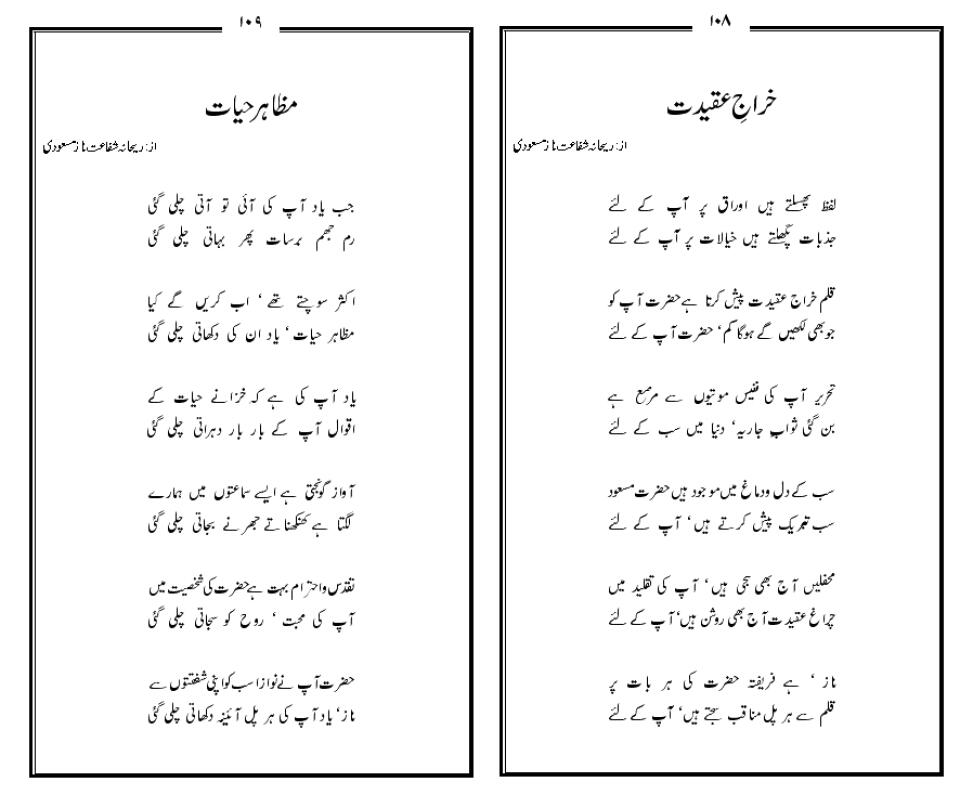 ۱۰۸
خراجِ عقیدت
از: ریحانہ شفاعت ناز مسعودی
لفظ پھسلتے ہیں اوراق پر آپ کے لئے
جذبات پگھلتے ہیں خیالات پر آپ کے لئے
قلم خراج عقیدت پیش کرتا ہے حضرت آپ کو
جو بھی لکھیں گے ہوگا کم، حضرت آپ کے لئے
تحریر آپ کی نفیس موتیوں سے مرصع ہے
بن گئی ثوابِ جاریہ، دنیا میں سب کے لئے
سب کے دل ودماغ میں موجود ہیں حضرت مسعود
سب تبریک پیش کرتے ہیں، آپ کے لئے
محفلیں آج بھی سجی ہیں، آپ کی تقلید میں
چراغ عقیدت آج بھی روشن ہیں، آپ کے لئے
ناز ، ہے فریفتہ حضرت کی ہر بات پر
قلم سے ہر پل مناقب سجتے ہیں، آپ کے لئے
۱۰۹
مظاہر حیات
از: ریحانہ شفاعت ناز مسعودی
جب یاد آپ کی آئی تو آتی چلی گئی
رم جھم برسات پھر بہاتی چلی گئی
اکثر سوچتے تھے ، اب کریں گے کیا
مظاہر حیات ، یاد ان کی دکھاتی چلی گئی
یاد آپ کی ہے کہ خزانے حیات کے
اقوال آپ کے بار بار دہراتی چلی گئی
آواز گونجتی ہے ایسے سماعتوں میں ہمارے
لگتا ہے کھنکھناتے جھرنے بجاتی چلی گئی
تقدس واحترام بہت ہے حضرت کی شخصیت میں
آپ کی محبت ، روح کو سجاتی چلی گئی
حضرت آپ نے نوازا سب کو اپنی شفقتوں سے
ناز، یاد آپ کی ہر پل آئینہ دکھاتی چلی گئی